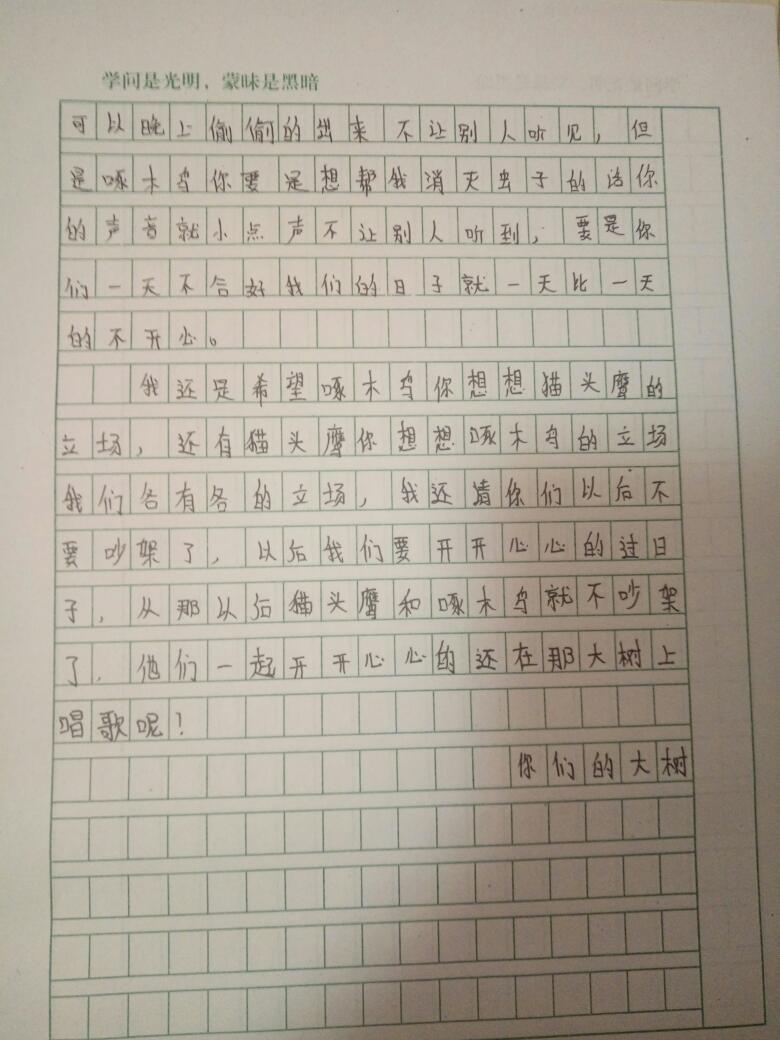 学问是光明，蒙昧是黑暗
可以晚上偷偷的出来不让别人听见，但
是啄木鸟你要是想帮我消灭虫子的话你
的声音就小点声不让别人听到，要是你
们一天不合好我们的日子就一天比一天
的不开心。
我还是希望啄木鸟你想想猫头鹰的
立场，还有猫头鹰你想想啄木鸟的立场
我们各有各的立场，我还请你们以后不
要吵架了，以后我们要开开心心的过日
子，从那以后猫头鹰和啄木鸟就不吵架
了，他们一起开开心心的还在那大树上
唱歌呢！
你们的大树